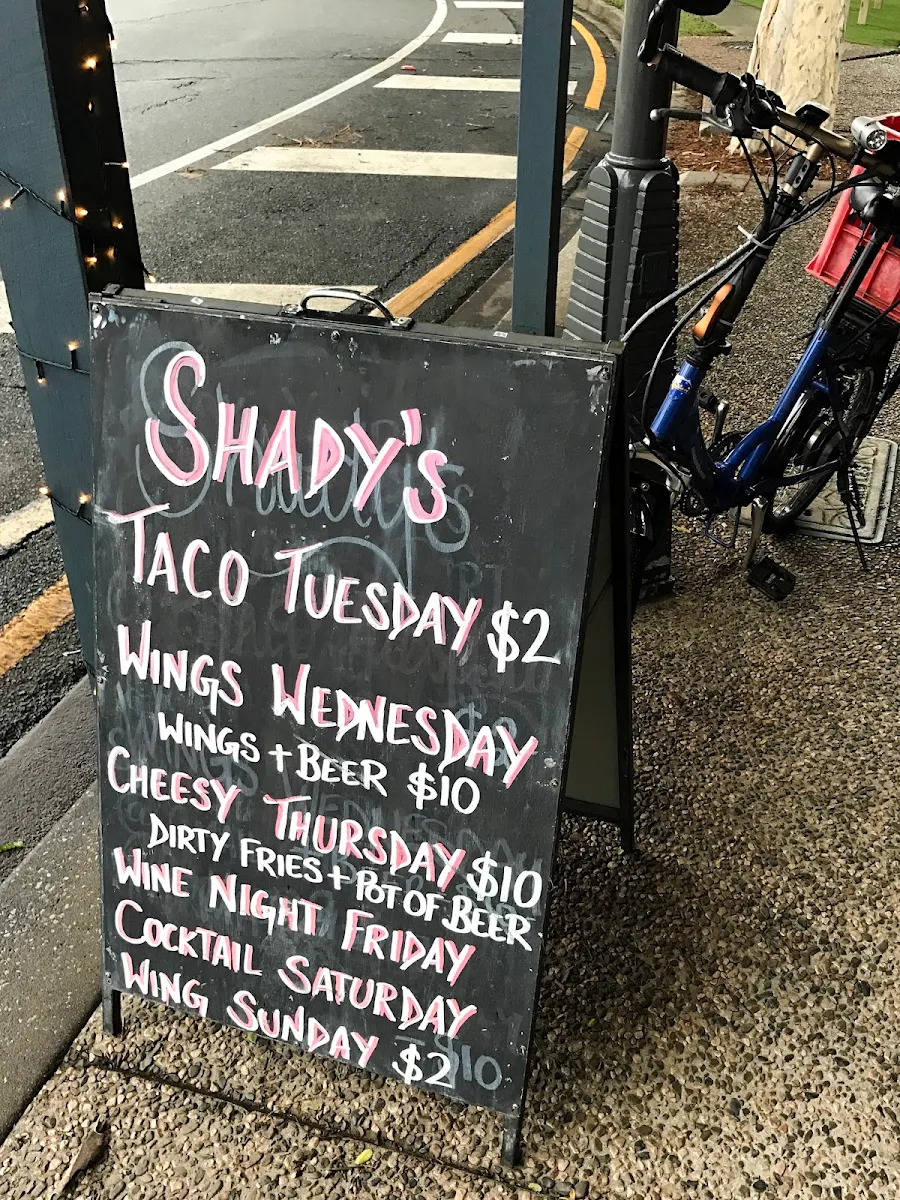 SHADY'S
TACO TUESDAY $2
WINGS WEDNESDAY
WINGS + BEER $10
CHEESY THURSDAY $10
DIRTY FRIES + POT OF BEER
WINE NIGHT FRIDAY
COCKTAIL SATURDAY
WING SUNDAY $2